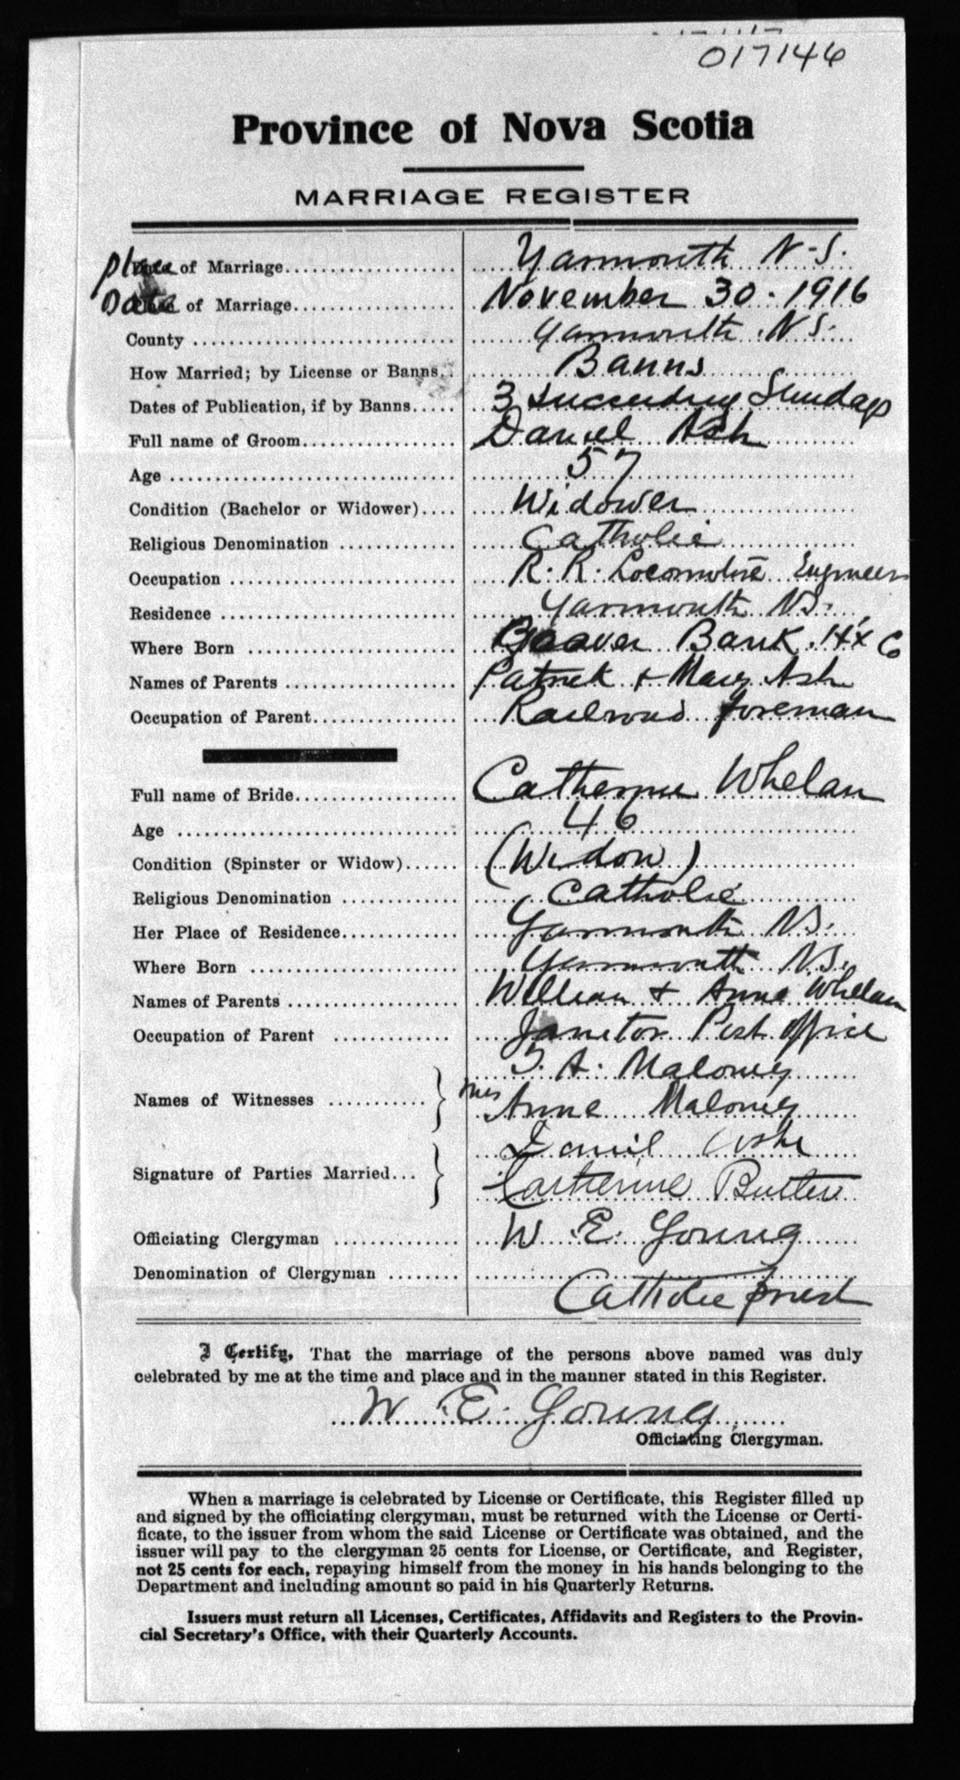 017146
Province of Nova Scotia
MARRIAGE REGISTER
Place of Marriage.................... Yarmouth N.S.
Date of Marriage................... November 30 - 1916
County ............................ Yarmouth N.S.
How Married; by License or Banns... Banns
Dates of Publication, if by Banns..... 3 succeeding Sundays
Full name of Groom.................. Daniel Ash
Age ............................... 57
Condition (Bachelor or Widower).... Widower
Religious Denomination ............ Catholic
Occupation ........................ R. R. Locomotive Engineer
Residence ......................... Yarmouth N.S.
Where Born ........................ Beaver Bank, H'x C
Names of Parents .................. Patrick & Mary Ash
Occupation of Parent................ Railroad foreman
Full name of Bride.................. Catherine Whelan
Age ............................... 46
Condition (Spinster or Widow)...... (Widow)
Religious Denomination ............ Catholic
Her Place of Residence.............. Yarmouth N.S.
Where Born ........................ Yarmouth N.S.
Names of Parents .................. William & Anna Whelan
Occupation of Parent .............. Janitor Post office
A. Maloney
Names of Witnesses ........... Mrs Anne Maloney
Daniel Ashe
Signature of Parties Married...
Catherine Butler
Officiating Clergyman ............. W. E. Young
Denomination of Clergyman ........ Catholic priest
I Certify, That the marriage of the persons above named was duly
celebrated by me at the time and place and in the manner stated in this Register.
W. E. Young
Officiating Clergyman.
When a marriage is celebrated by License or Certificate, this Register filled up
and signed by the officiating clergyman, must be returned with the License or Certi-
ficate, to the issuer from whom the said License or Certificate was obtained, and the
issuer will pay to the clergyman 25 cents for License, or Certificate, and Register,
not 25 cents for each, repaying himself from the money in his hands belonging to the
Department and including amount so paid in his Quarterly Returns.
Issuers must return all Licenses, Certificates, Affidavits and Registers to the Provin-
cial Secretary's Office, with their Quarterly Accounts.